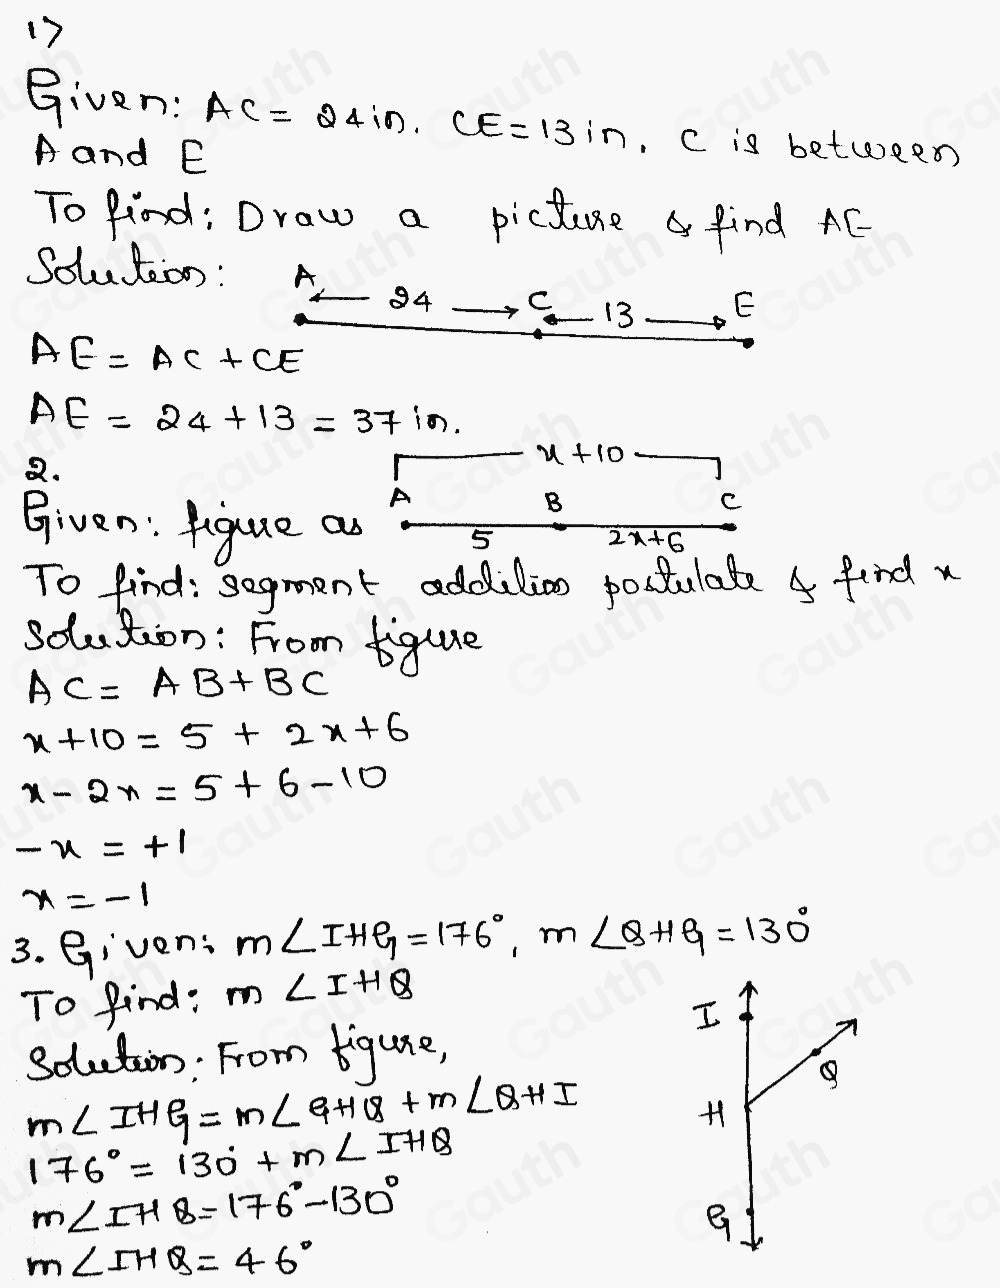 1>
Given: AC = 24in. CE=13in. C is between
A and E
To find: Draw a picture & find AE
Solution:
A 24 C 13 E
AE = AC + CE
AE = 24+13 = 37in.
2.
x+10
Given: figure as A B C
5 2x+6
To find: segment addition postulate & find x
Solution: From figure
AC = AB+BC
x+10 = 5 + 2x+6
x-2x = 5+6-10
-x = +1
x = -1
3. Given: m∠IHG = 176°, m∠QHG = 130°
To find: m∠IHQ
Solution: From figure,
m∠IHG = m∠GHQ + m∠QHI
176° = 130° + m∠IHQ
m∠IHQ = 176°-130°
m∠IHQ = 46°
I
Q
H
G
Gauth